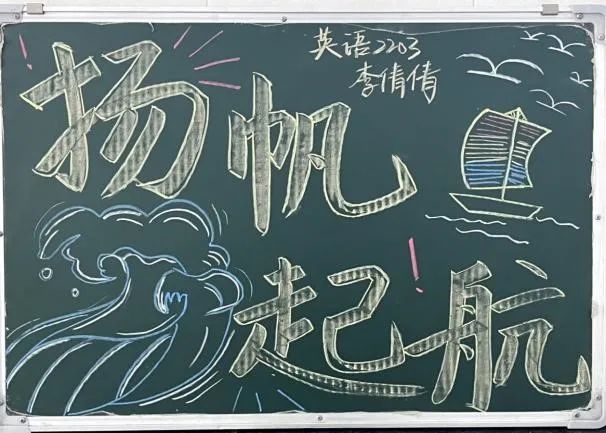 英语2203
李倩倩
扬帆
起航